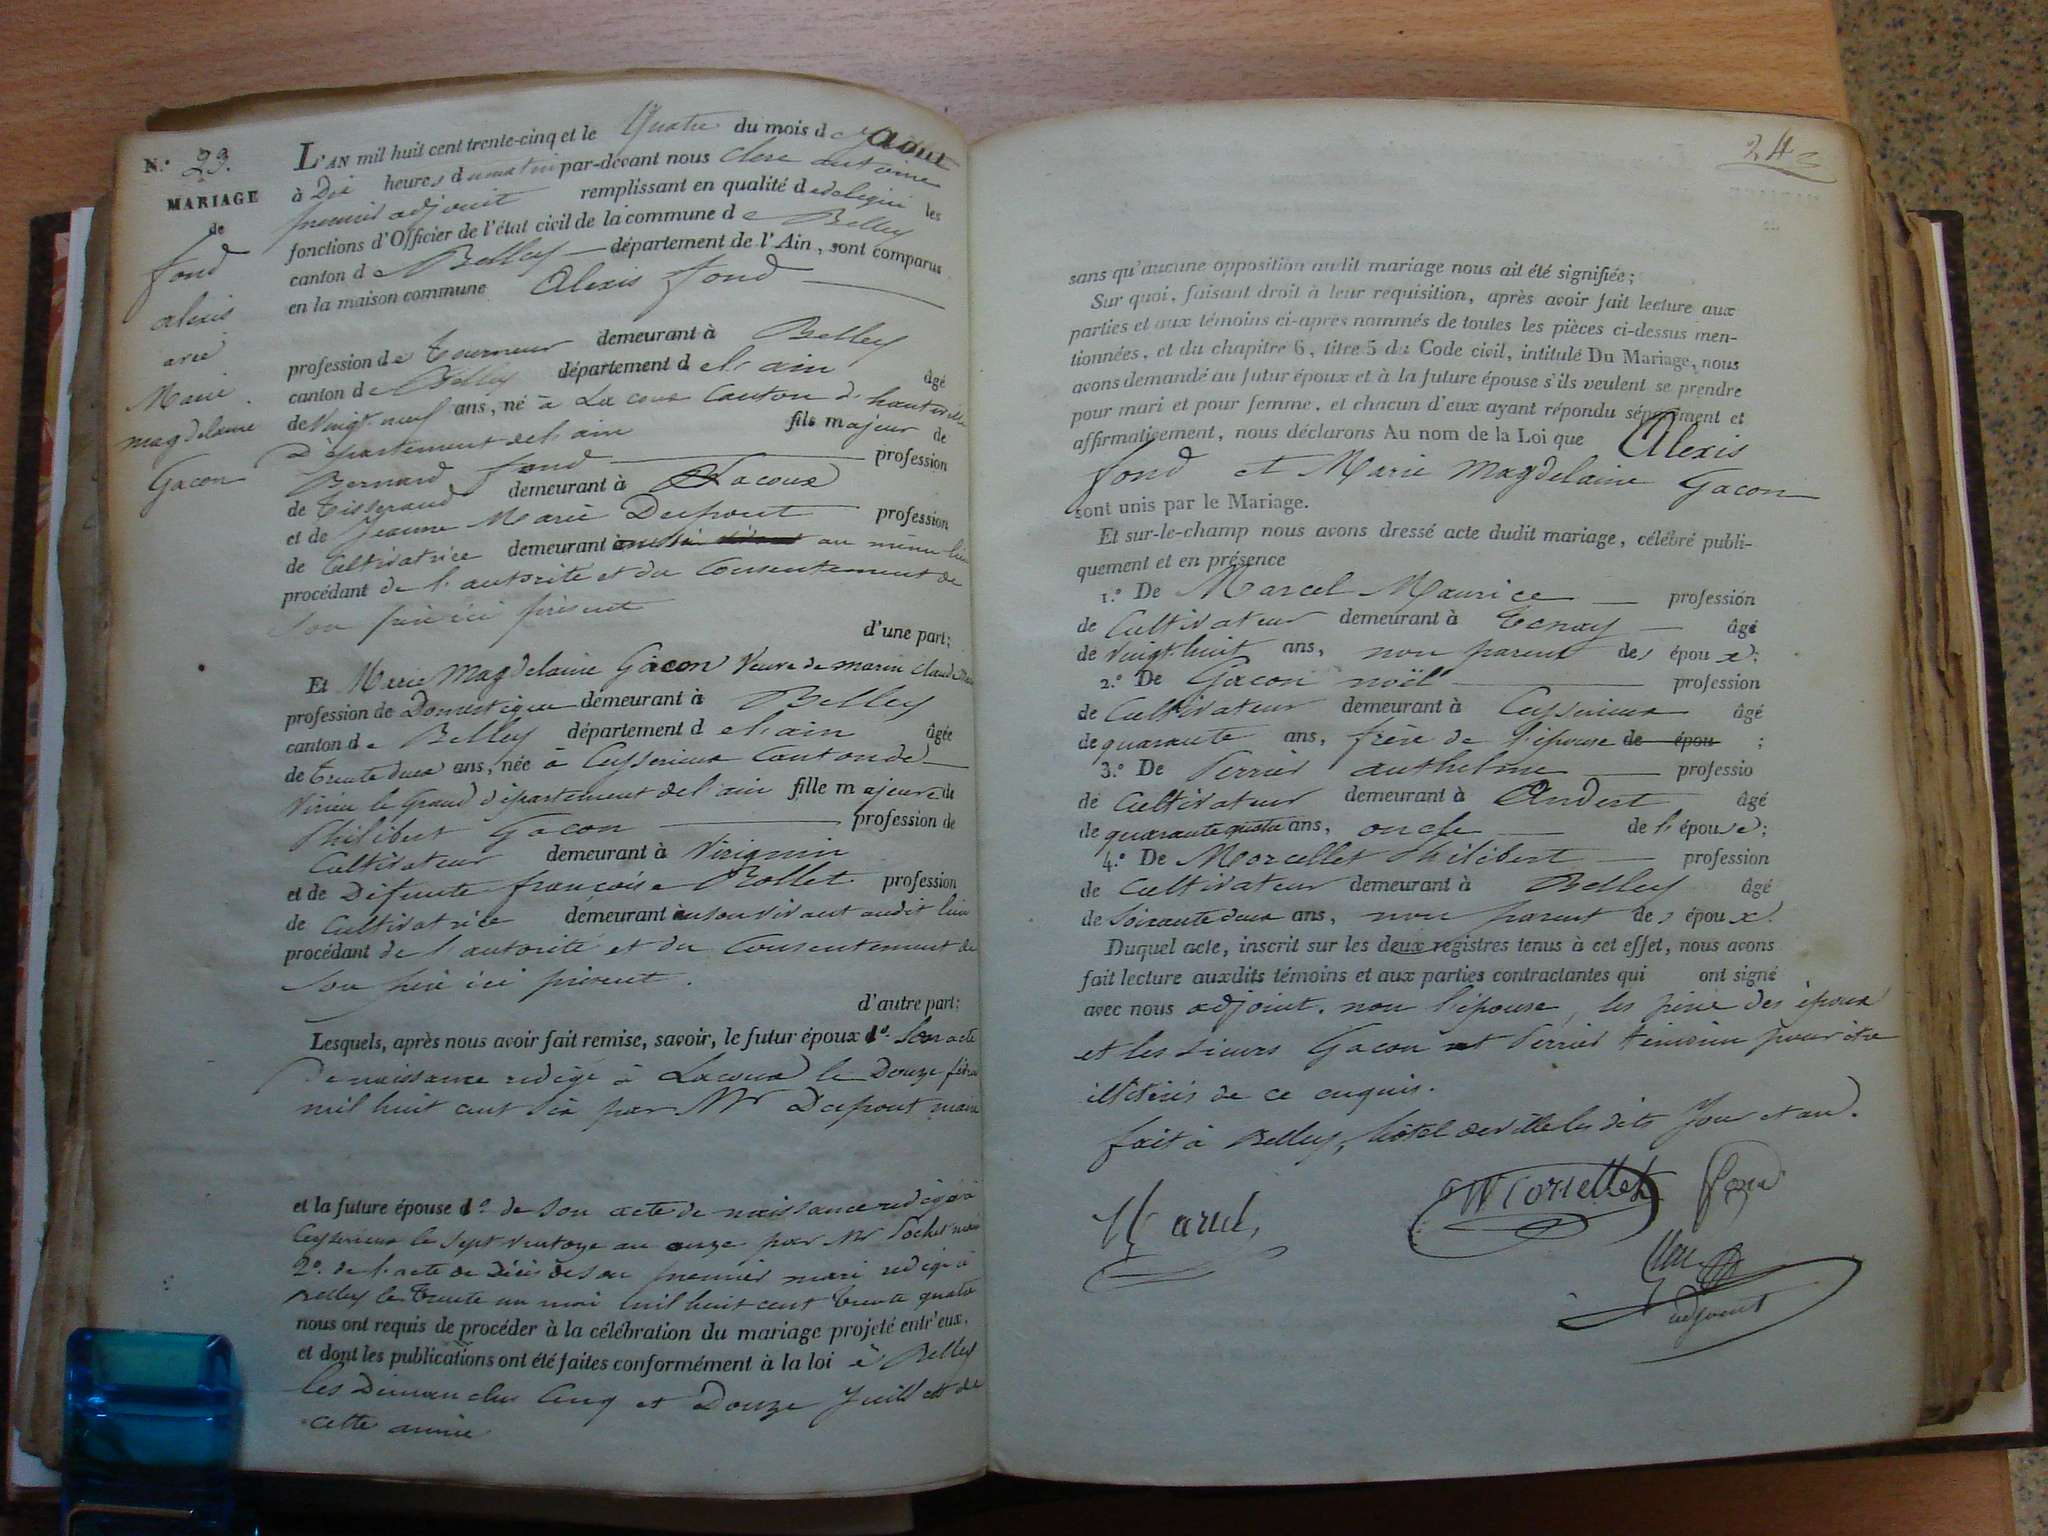 N.° 23.
MARIAGE
de
fond
alexis
avec
Marie
magdelaine
Gacon
L'AN mil huit cent trente-cinq et le Quatre du mois d aout
à Dix heures du matin par-devant nous antoine
premier adjoint remplissant en qualité de les
fonctions d'Officier de l'état civil de la commune de Belley
canton de Belley département de l'Ain, sont comparus
en la maison commune Alexis fond
profession de Tourneur demeurant à Belley
canton de Belley département de l'ain âgé
de vingt neuf ans, né à La coux Canton d'hauteville
département de l'ain fils majeur de
Bernard fond profession
de Tisserand demeurant à Lacoux
et de Jeanne Marie Dupont profession
de Cultivatrice demeurant au même lieu
procédant de l'autorité et du Consentement de
son père ici présent
d'une part;
Et Marie Magdelaine Gacon veuve de marin claude
profession de Domestique demeurant à Belley
canton de Belley département de l'ain âgée
de trente deux ans, née à Ceyserieux Canton de
Virieu le Grand département de l'ain fille majeure de
Philibert Gacon profession de
Cultivateur demeurant à Virignin
et de Défunte françoise Rollet profession
de Cultivatrice demeurant en son vivant audit lieu
procédant de l'autorité et du Consentement de
son père ici présent.
d'autre part;
Lesquels, après nous avoir fait remise, savoir, le futur époux d° son acte
De naissance redigé à Lacoux le Douze
mil huit cent six par Mr Dupont maire
et la future épouse 1° de son acte de naissance redigé à
Ceyserieux le sept ventoze an onze par Mr Pochet maire
2°. de l'acte de Décès de son premier mari redigé à
Belley le trente un mai mil huit cent trente quatre
nous ont requis de procéder à la célébration du mariage projeté entr'eux,
et dont les publications ont été faites conformément à la loi à Belley
les Dimanches Cinq et Douze Juillet de
cette année
24
sans qu'aucune opposition audit mariage nous ait été signifiée;
Sur quoi, faisant droit à leur requisition, après avoir fait lecture aux
parties et aux témoins ci-après nommés de toutes les pièces ci-dessus men-
tionnées, et du chapitre 6, titre 5 du Code civil, intitulé Du Mariage, nous
avons demandé au futur époux et à la future épouse s'ils veulent se prendre
pour mari et pour femme, et chacun d'eux ayant répondu séparément et
affirmativement, nous déclarons Au nom de la Loi que Alexis
fond et Marie Magdelaine Gacon
sont unis par le Mariage.
Et sur-le-champ nous avons dressé acte dudit mariage, célébré publi-
quement et en présence
1.° De Marcel Maurice profession
de Cultivateur demeurant à Tenay âgé
de vingt huit ans, non parent des époux;
2.° De Gacon noël profession
de Cultivateur demeurant à Ceyserieux âgé
de quarante ans, frère de l'épouse de épou ;
3.° De Perrier anthelme professio
de Cultivateur demeurant à Andert âgé
de quarante quatre ans, oncle de l'épouse;
4.° De Morcellet Philibert profession
de Cultivateur demeurant à Belley âgé
de soixante deux ans, non parent des époux.
Duquel acte, inscrit sur les deux registres tenus à cet effet, nous avons
fait lecture auxdits témoins et aux parties contractantes qui ont signé
avec nous adjoint. non l'épouse, les père des époux
et les sieurs Gacon et Perrier témoins pour être
illitérés de ce enquis.
fait à Belley, hôtel de ville les dits Jour et an.
Marcel
Morcellet
fond
adjoint